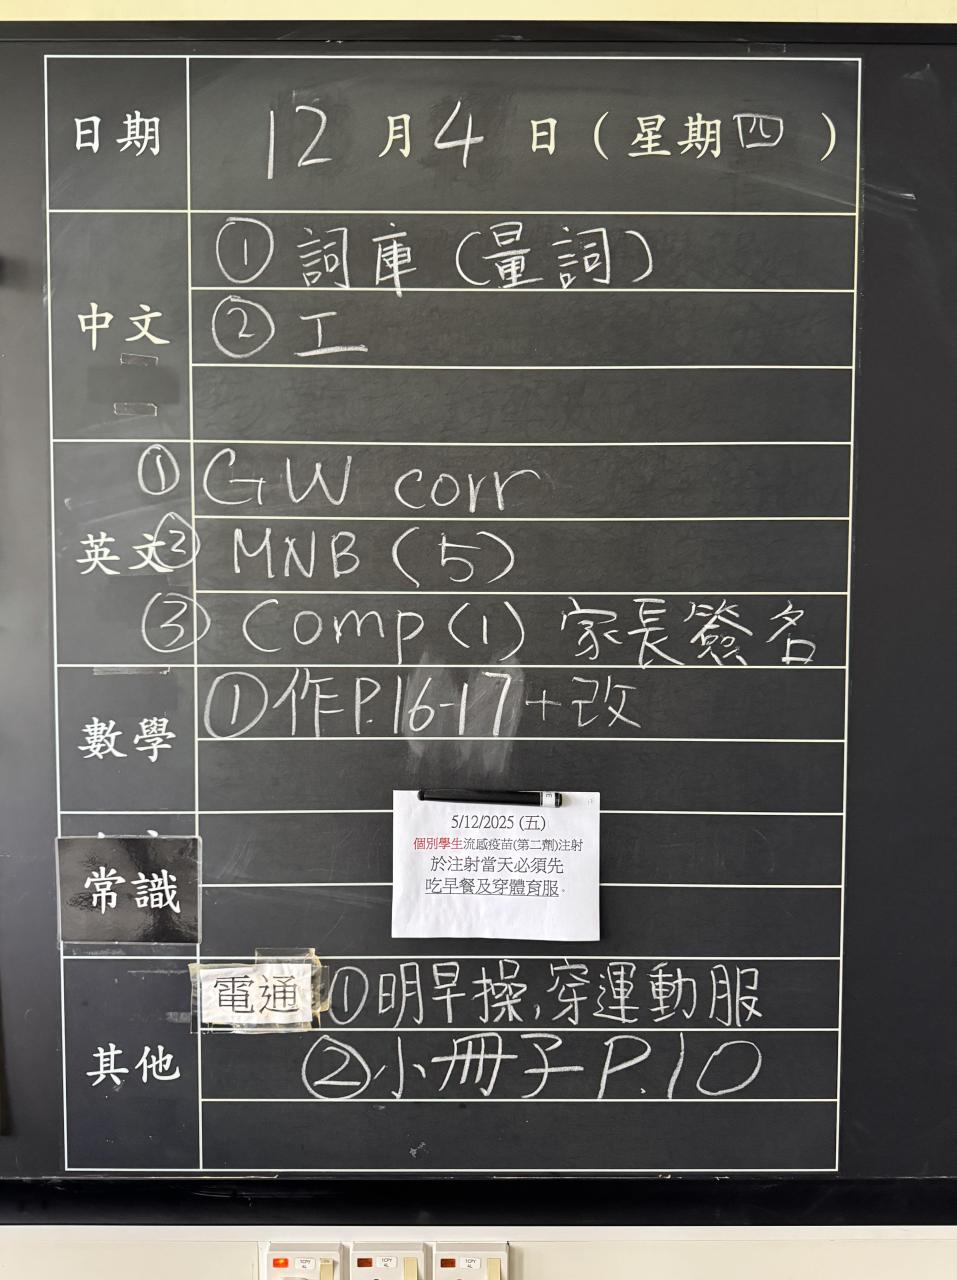 日期 12月4日（星期四）
中文
① 詞庫（量詞）
② 工
英文
① GW corr
② MNB (5)
③ Comp (1) 家長簽名
數學
① 作P.16-17+改
5/12/2025 (五)
個別學生流感疫苗(第二劑)注射
於注射當天必須先
吃早餐及穿體育服。
常識
其他
電通 ①明早操,穿運動服
②小冊子 P.10